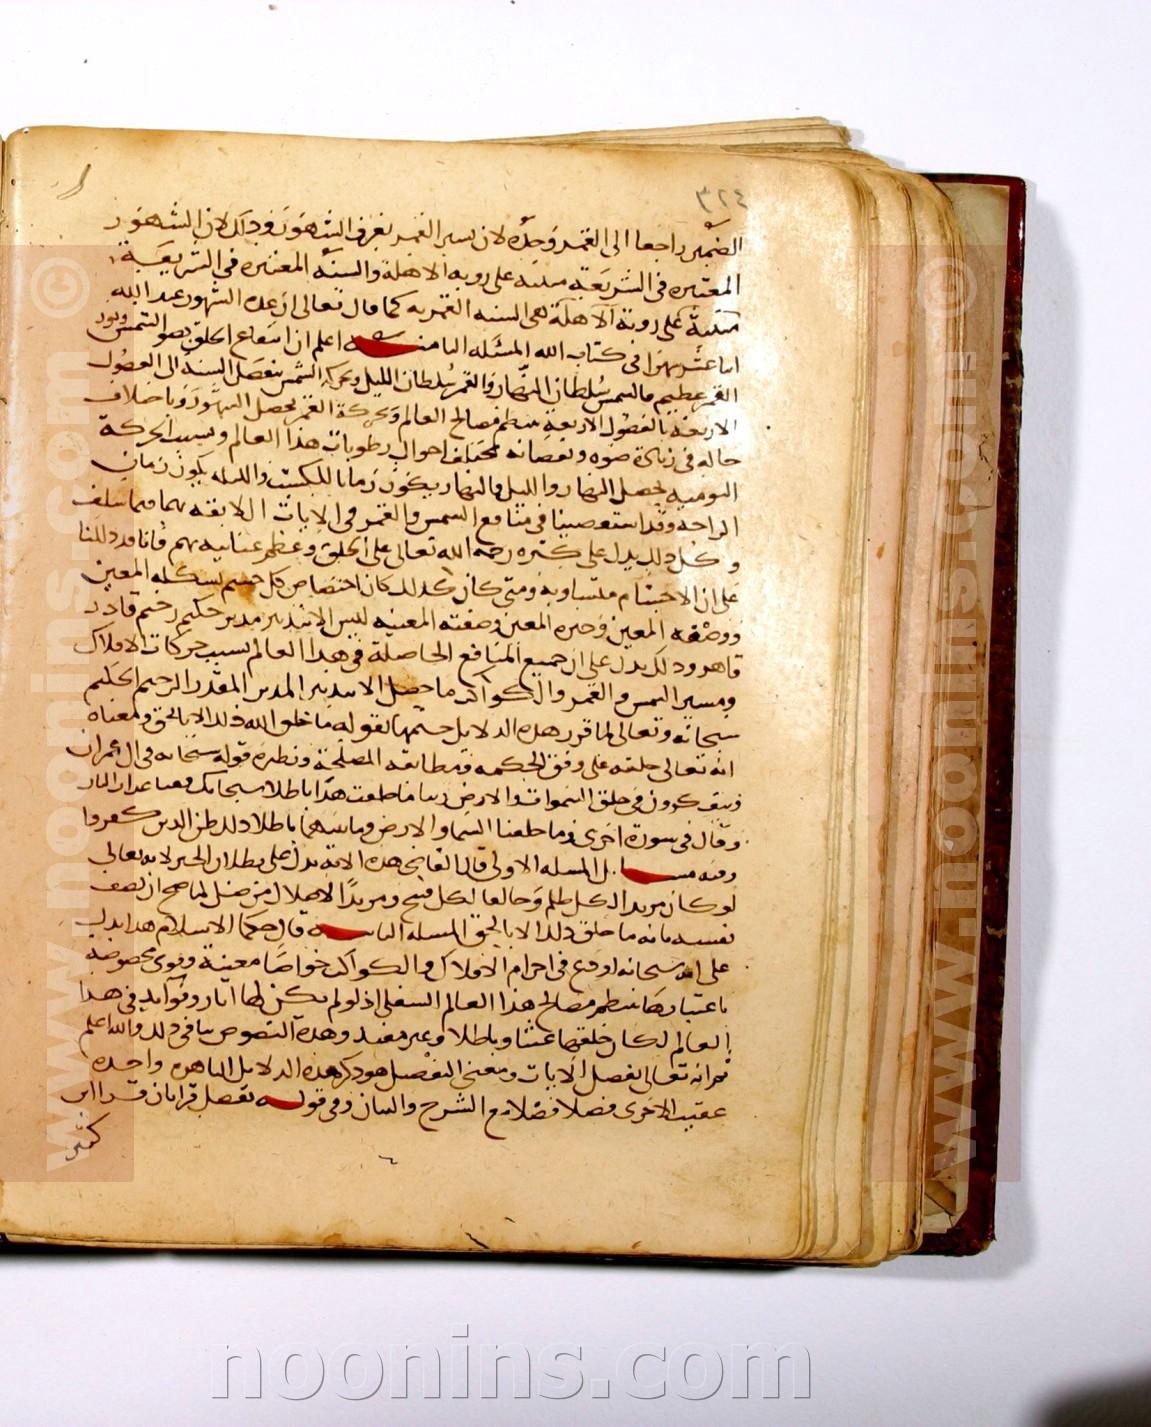 ٣٢٤
الضمير راجعا الى القمر وحده لان بسير القمر يعرف الشهور وذلك لان الشهور
المعتبره في الشريعة مبنيه على رويه الاهلة والسنه المعتبره في الشريعية
مبنية على روية الاهلة هي السنه القمريه كما قال تعالى ان عده الشهور عند الله
اثنا عشر شهرا في كتاب الله المسئله الثامنه اعلم ان انتفاع الخلق بضو الشمس وبنور
القمر عظيم فالشمس سلطان النهار والقمر سلطان الليل وبحركه الشمس ينفصل السنة الى الفصول
الاربعة بالفصول الاربعة ينتظم مصالح العالم وبحركة القمر يحصل الشهور وباختلاف
حاله في زيادة ضوه ونقصانه يختلف احوال رطوبات هذا العالم وبسبب الحركة
اليوميه يحصل النهار والليل فالنهار يكون زمانا للتكسب والليله يكون زمان
الراحه وقد استقصينا في منافع الشمس والقمر في الايات اللايقه بهما فيما سلف
وكل ذلك يدل على كثره رحمه الله تعالى على الخلق وعظم عنايته بهم فانا قد دللنا
على ان الاجسام متساويه ومتى كان كذلك كان اختصاص كل جسم بشكله المعين
ووضعه المعين وحيزه المعين وصفته المعينه ليس الا بتدبير مدبر حكيم رحيم قادر
قاهر وذلك يدل على ان جميع المنافع الحاصلة في هذا العالم بسبب حركات الافلاك
ومسير الشمس والقمر والكواكب ما حصل الا بتدبير المدبر المقدر الرحيم الحكيم
سبحانه وتعالى لما قرر هذه الدلايل ختمها بقوله ما خلق الله ذلك الا بالحق ومعناه
انه تعالى خلقه على وفق الحكمه ومطابقه المصلحة ونظيره قوله سبحانه في ال عمران
ويتفكرون في خلق السموات والارض ربنا ما خلقت هذا باطلا سبحانك فقنا عذاب النار
وقال في سورة اخرى وما خلقنا السما والارض وما بينهما باطلا ذلك ظن الذين كفروا
وفيه مسايل المسله الاولى قال القاضي هذه الاية تدل على بطلان الجبر لانه تعالى
لو كان مريدا لكل ظلم وخالقا لكل قبيح ومريدا لاضلال من ضل لما صح ان يصف
نفسه بانه ما خلق ذلك الا بالحق المسله الثانيه قال حكما الاسلام هذا يدل
على انه سبحانه اودع في اجرام الافلاك والكواكب خواصا معينة وقوى مخصوصة
باعتبارها ينتظم مصالح هذا العالم السفلى اذ لو لم يكن لها اثار وفوايد في هذا
العالم لكان خلقها عبثا وباطلا وغير مفيد وهذه النصوص تنافي ذلك والله اعلم
ثم انه تعالى يفصل الايات ومعنى التفصيل هو ذكر هذه الدلايل الباهره واحده
عقيب الاخرى فصلا فصلا مع الشرح والبيان وفي قوله نفصل قراتان قرا ابن
كثير
noonins.com
www.noonins.com ©
www.noonins.com ©